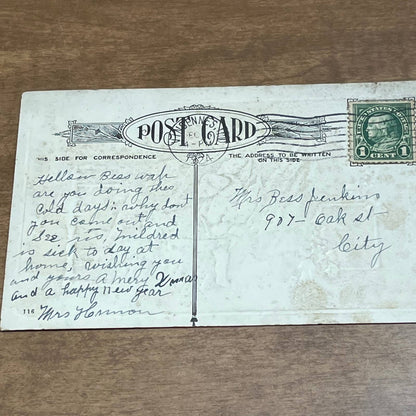 POST CARD
THIS SIDE FOR CORRESPONDENCE
THE ADDRESS TO BE WRITTEN
ON THIS SIDE
UNITED STATES POSTAGE
1 CENT 1
Hellow Bess
are you doing thes
Cold days. why dont
you come out and
See us, Mildred
is sick to day at
home, wishing you
and yours a Mery Xmas
and a happy New year
Mrs Harmon
116
Mrs Bess Jenkins
907 - Oak st
City